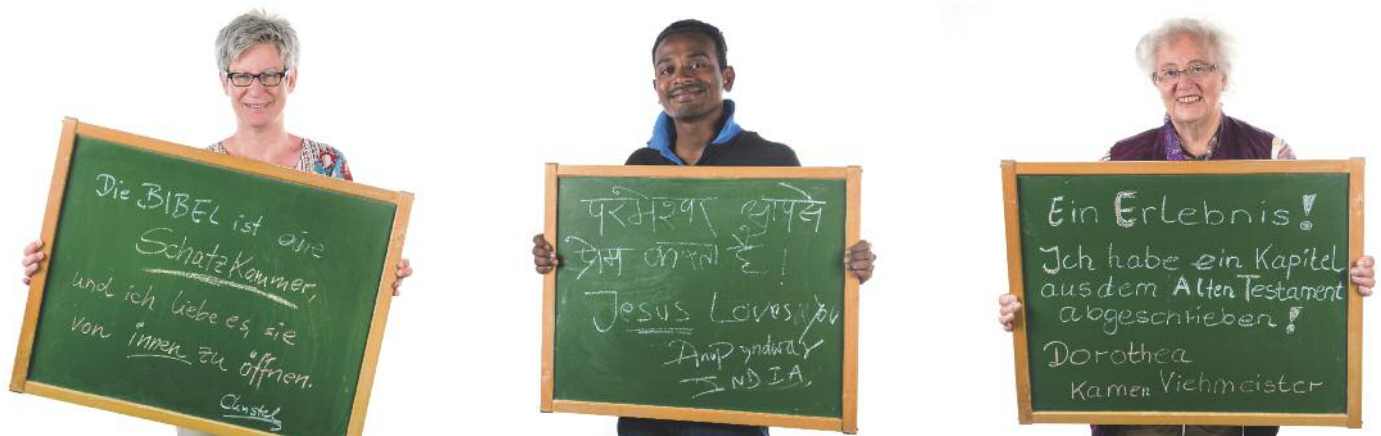 Die BIBEL ist eine
Schatzkammer,
und ich liebe es, sie
von innen zu öffnen.
Christel
परमेश्वर आपसे
प्रेम करता है।
Jesus Loves you
Anup
INDIA
Ein Erlebnis!
Ich habe ein Kapitel
aus dem Alten Testament
abgeschrieben!
Dorothea
Kamen Viehmeister